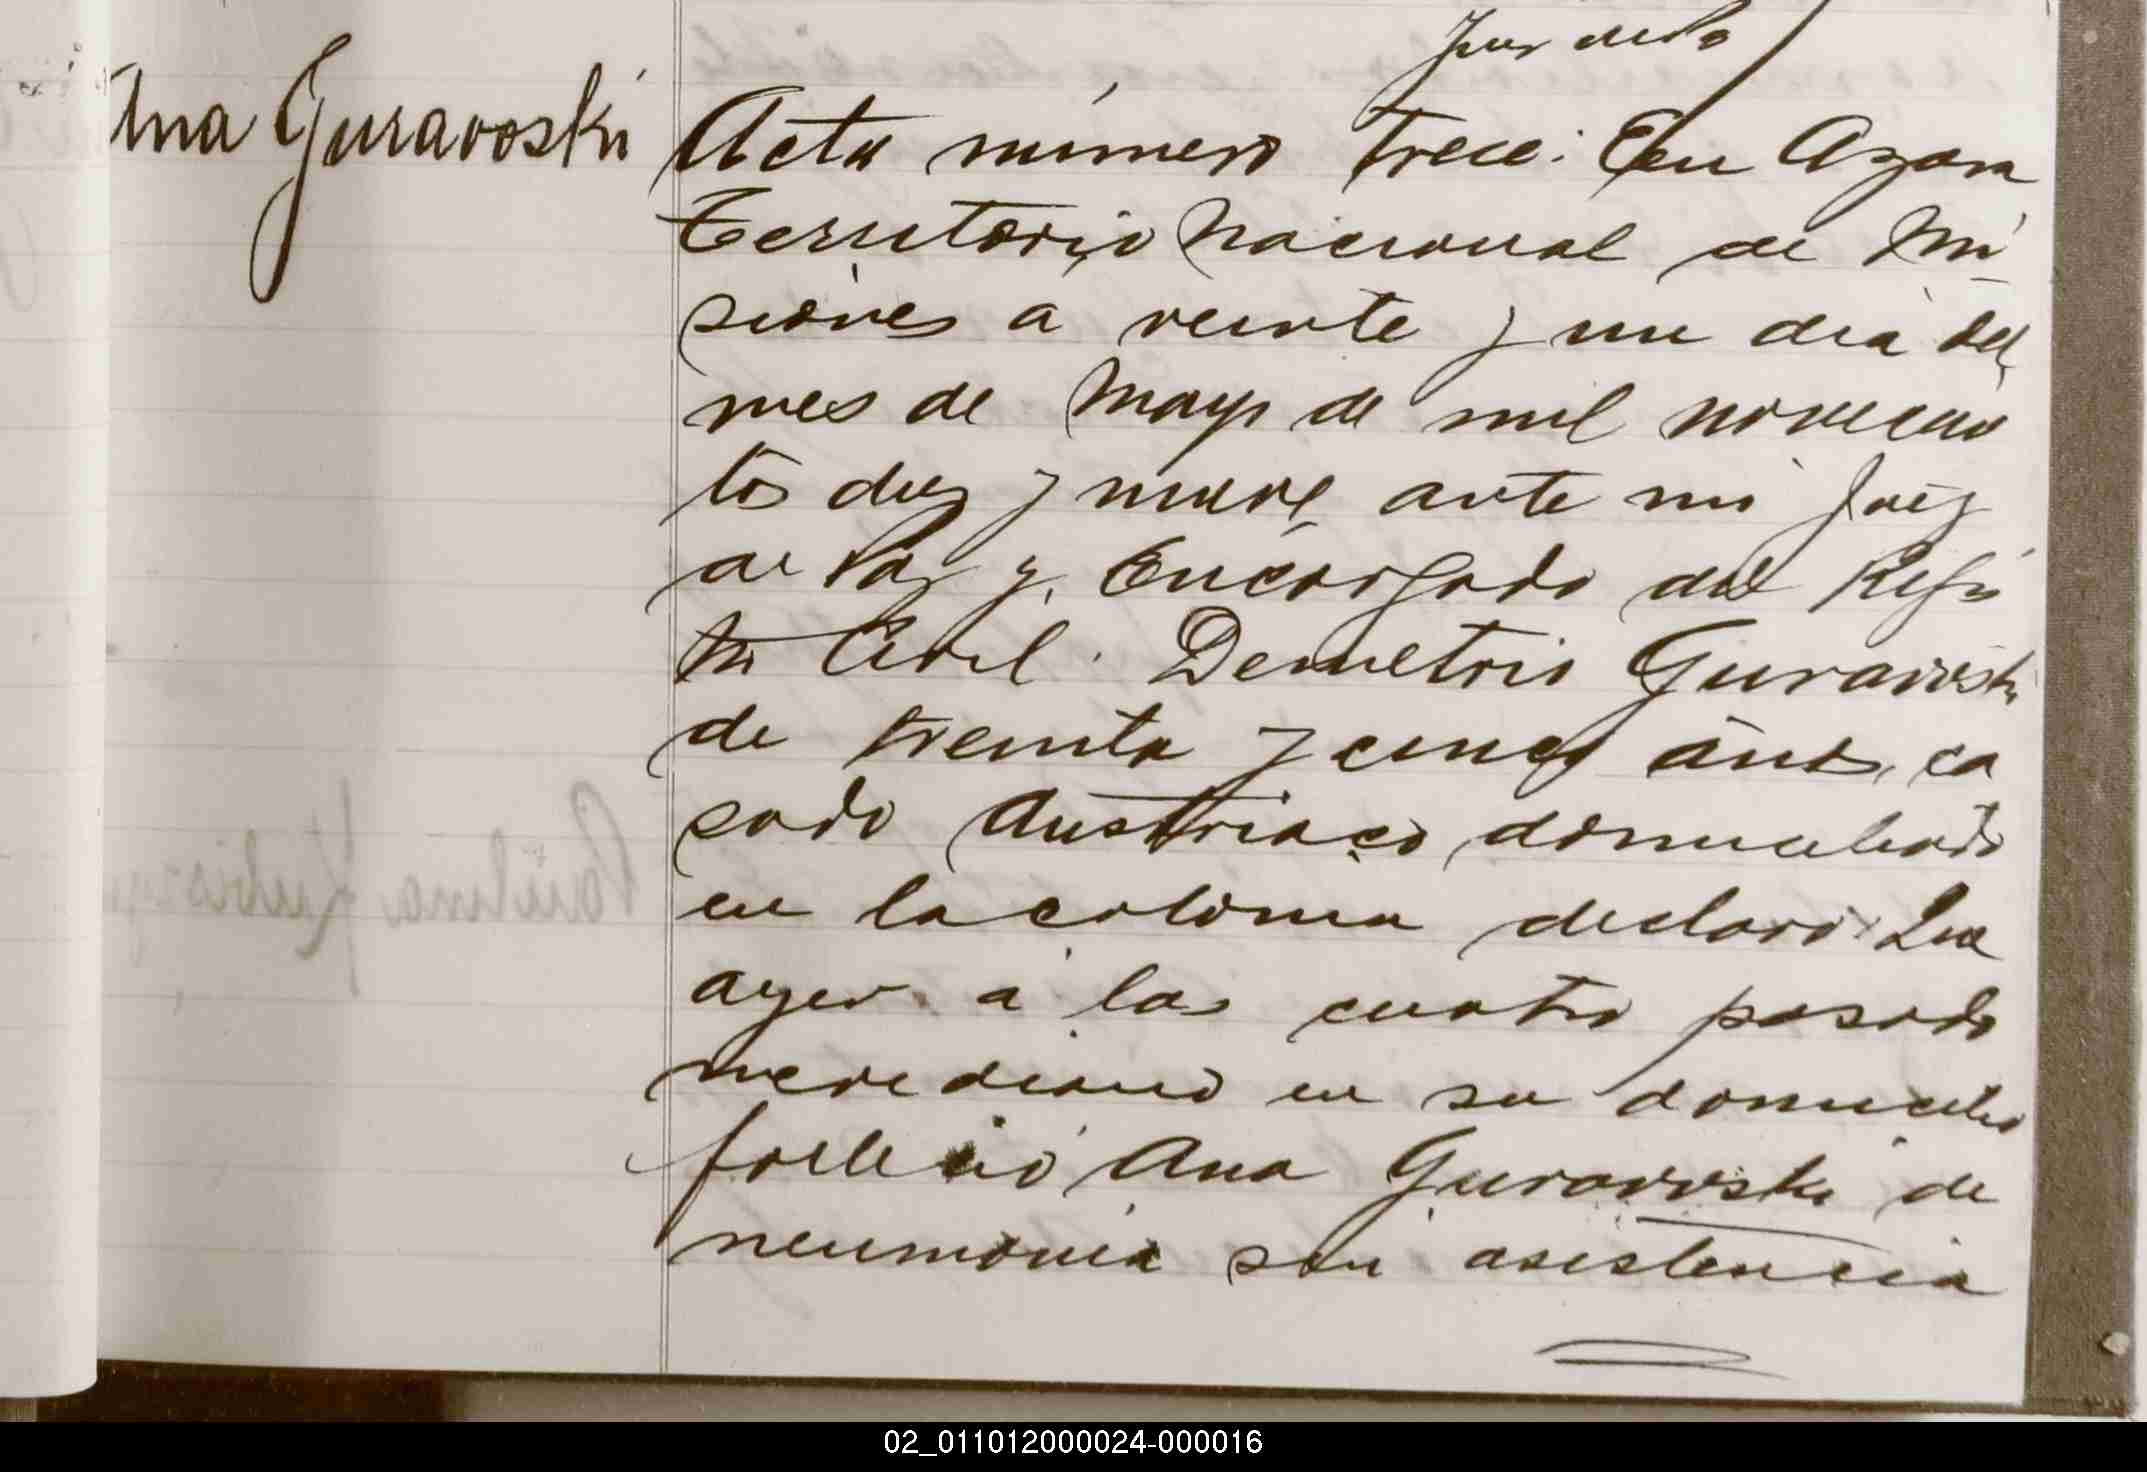 Juez de Paz
Ana Guravoski
Acta número trece: En Azara
Territorio Nacional de Mi-
siones a veinte y un dia del
mes de Mayo de mil novecien
tos diez y nueve, ante mi Juez
de Paz y Encargado del Regis
tro Civil. Demetrio Guravoski
de treinta y cinco años, ca
sado Austriaco domiciliado
en la colonia declaró: Que
ayer a las cuatro pasado
meridiano en su domicilio
falleció Ana Guravoski de
neumonia sin asistencia
Paulina
02_011012000024-000016